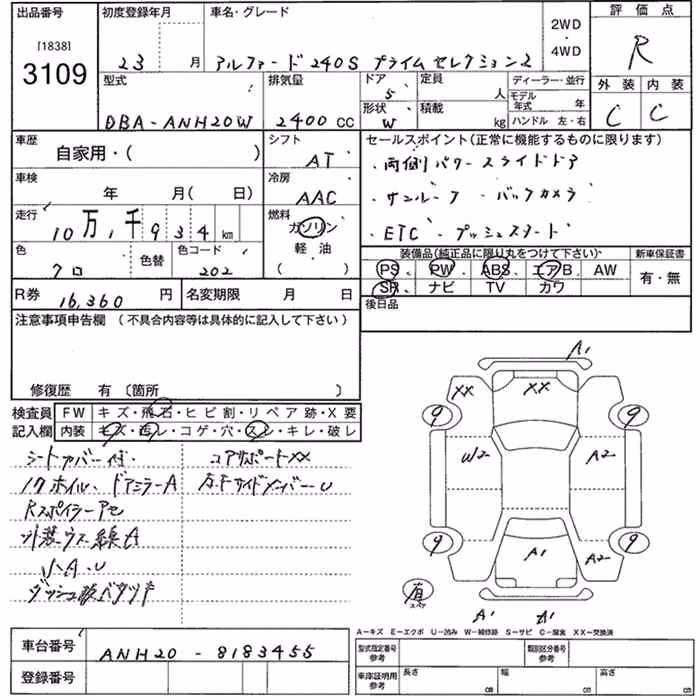 出品番号 初度登録年月 車名・グレード 2WD・4WD 評価点
[1838]
3109
23 月 アルファード 240S プライムセレクション2 R
型式 排気量 ドア 定員 人 ディーラー・並行 外装 内装
5
DBA-ANH20W 2400 CC 形状 W 積載 kg モデル年式 年 ハンドル 左・右 C C
車歴 自家用・( ) シフト AT
セールスポイント(正常に機能するものに限ります)
・両側パワースライドドア
車検 年 月(日) 冷房 AAC
・サンルーフ ・バックカメラ
走行 10万,千934km 燃料 ガソリン 軽油 ( )
・ETC ・プッシュスタート
色 クロ 色替 色コード 202
装備品(純正品に限り丸をつけて下さい) 新車保証書
PS PW ABS エアB AW 有・無
SR ナビ TV カワ
R券 16,360 円 名変期限 月 日
後日品
注意事項申告欄 (不具合内容等は具体的に記入して下さい)
修復歴 有〔箇所 〕
検査員 FW キズ・飛石・ヒビ割・リペア跡・X要
記入欄 内装 キズ・汚レ・コゲ・穴・スレ・キレ・破レ
シートカバー付 コアサポートXX
17ホイル、ドアミラーA 右Fサイドメンバー U
RスポイラーA
外装ウス線A
小A・U
ダッシュ
A1
XX XX
9 9
W2 A2
9 A1 A2 9
有 スペア
A1 A1
A-キズ E-エクボ U-凹み W-補修跡 S-サビ C-腐食 XX-交換済
車台番号 ANH20-8183455
型式指定番号 参考 類別区分番号 参考
登録番号
車庫証明用 参考 長さ cm 幅 cm 高さ cm